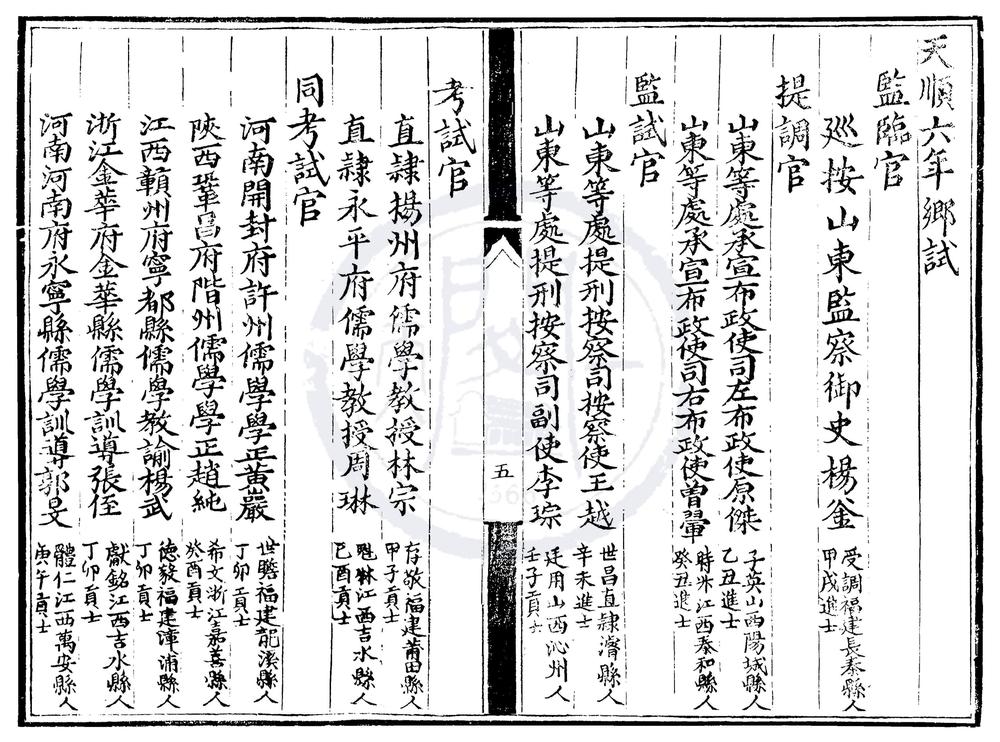 天順六年鄉試
監臨官
廵按山東監察御史楊釡
受調福建長泰縣人
甲戌進士
提調官
山東等處承宣布政使司左布政使原傑
子英山西陽城縣人
乙丑進士
山東等處承宣布政使司右布政使曾翬
時升江西泰和縣人
癸丑進士
監試官
山東等處提刑按察司按察使王越
世昌直隸濬縣人
辛未進士
山東等處提刑按察司副使李琮
廷用山西沁州人
壬子貢士
五
考試官
直隸揚州府儒學教授林宗
存敬福建莆田縣人
甲子貢士
直隸永平府儒學教授周琳
江西吉水縣人
己酉貢士
同考試官
河南開封府許州儒學學正黃巖
世瞻福建龍溪縣人
丁卯貢士
陜西鞏昌府階州儒學學正趙純
希文浙江嘉善縣人
癸酉貢士
江西贛州府寧都縣儒學教諭楊武
德毅福建漳浦縣人
丁卯貢士
浙江金華府金華縣儒學訓導張侄
獻銘江西吉水縣人
丁卯貢士
河南河南府永寧縣儒學訓導郭旻
體仁江西萬安縣人
庚午貢士